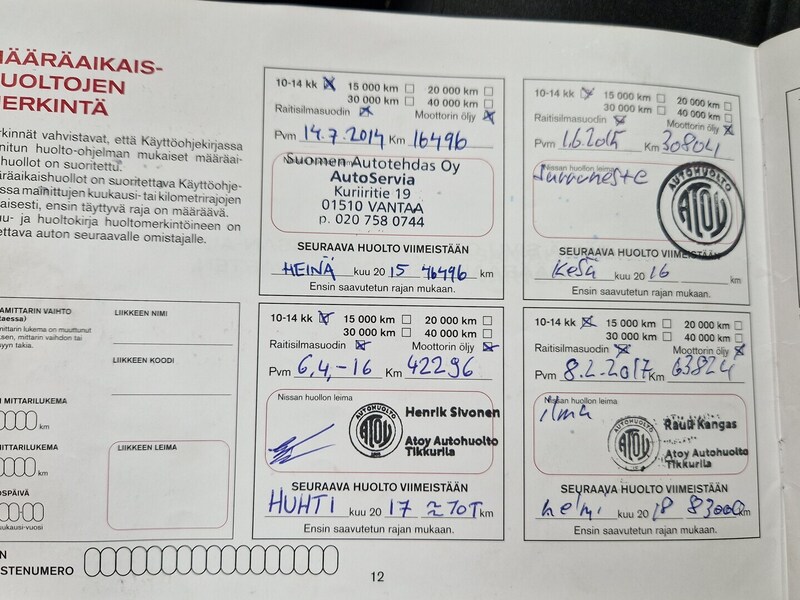 MÄÄRÄAIKAIS-
HUOLTOJEN
MERKINTÄ
erkinnät vahvistavat, että Käyttöohjekirjassa
nitun huolto-ohjelman mukaiset määräai-
huollot on suoritettu.
äräaikaishuollot on suoritettava Käyttöohje-
ssa mainittujen kuukausi- tai kilometrirajojen
aisesti, ensin täyttyvä raja on määräävä.
u- ja huoltokirja huoltomerkintöineen on
ettava auton seuraavalle omistajalle.
10-14 kk 15 000 km 20 000 km
30 000 km 40 000 km
Raitisilmasuodin Moottorin öljy
Pvm 14.7.2014 Km 16496
Suomen Autotehdas Oy
AutoServia
Kuriiritie 19
01510 VANTAA
p. 020 758 0744
SEURAAVA HUOLTO VIIMEISTÄÄN
HEINÄ kuu 20 15 46496 km
Ensin saavutetun rajan mukaan.
10-14 kk 15 000 km 20 000 km
30 000 km 40 000 km
Raitisilmasuodin Moottorin öljy
Pvm 1.6.2015 Km 30804
Nissan huollon leima
AUTOHUOLTO
ATOY
SEURAAVA HUOLTO VIIMEISTÄÄN
Kesä kuu 20 16 km
Ensin saavutetun rajan mukaan.
AMITTARIN VAIHTO
taessa)
mittarin lukema on muuttunut
ksen, mittarin vaihdon tai
syyn takia.
MITTARILUKEMA
km
MITTARILUKEMA
km
OSPÄIVÄ
ukausi-vuosi
LIIKKEEN NIMI
LIIKKEEN KOODI
LIIKKEEN LEIMA
10-14 kk 15 000 km 20 000 km
30 000 km 40 000 km
Raitisilmasuodin Moottorin öljy
Pvm 6,4,-16 Km 42296
Nissan huollon leima
AUTOHUOLTO
ATOY
Henrik Sivonen
Atoy Autohuolto
Tikkurila
SEURAAVA HUOLTO VIIMEISTÄÄN
HUHTI kuu 20 17 ≈ 70T km
Ensin saavutetun rajan mukaan.
10-14 kk 15 000 km 20 000 km
30 000 km 40 000 km
Raitisilmasuodin Moottorin öljy
Pvm 8.2.2017 Km 63824
Nissan huollon leima
ilma
AUTOHUOLTO
ATOY
Rauli Kangas
Atoy Autohuolto
Tikkurila
SEURAAVA HUOLTO VIIMEISTÄÄN
helmi kuu 20 18 83000 km
Ensin saavutetun rajan mukaan.
EN
STENUMERO
12